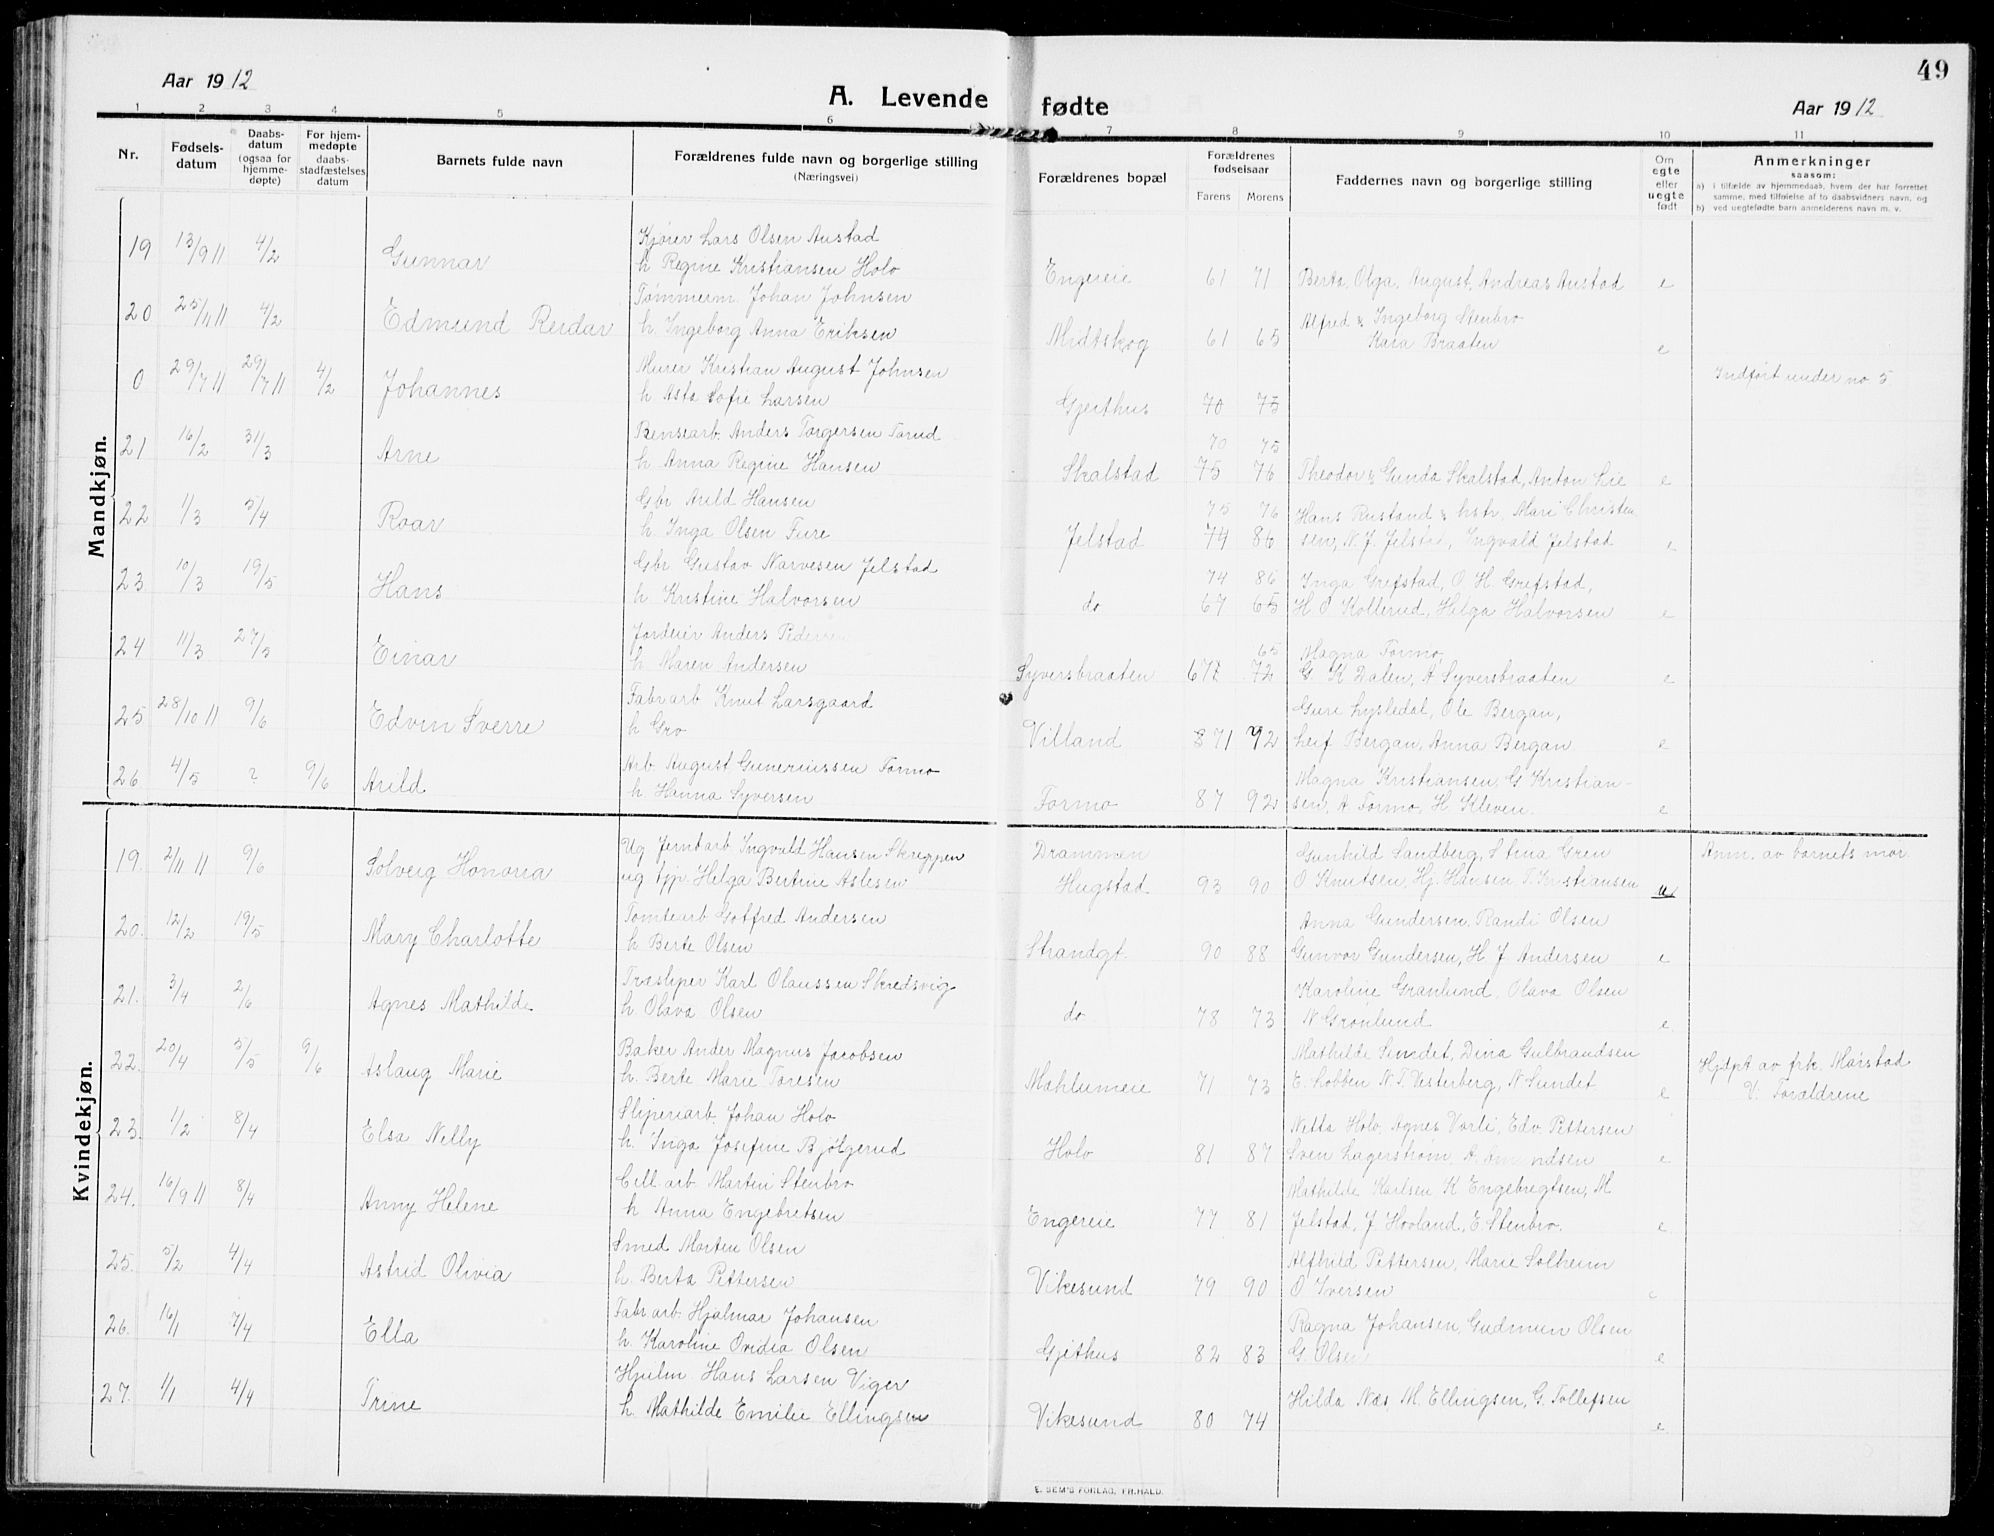 Aar 1912
A. Levende
fødte
Aar 1912
49
1 2 3 4 5 6 7 8 9 10 11
Nr.
Fødsels-
datum
Daabs-
datum
(ogsaa for
hjemme-
døpte)
For hjem-
medøpte
daabs-
stadfæstelses
datum
Barnets fulde navn
Forældrenes fulde navn og borgerlige stilling
(Næringsvei)
Forældrenes bopæl
Forældrenes
fødselsaar
Farens Morens
Faddernes navn og borgerlige stilling
Om
egte
eller
uegte
født
Anmerkninger
saasom:
a) i tilfælde av hjemmedaab, hvem der har forrettet
samme, med tilføielse af to daabsvidners navn, og
b) ved uegtefødte barn anmelderens navn m. v.
Mandkjøn.
19 13/9 11 4/2 Gunnar
Kjører Lars Olsen Austad
h Regine Kristiansen Holo
Engereie 61 71 Berta, Olga, August, Andreas Austad e
20 25/11 11 4/2 Edmund Reidar
Tømmerm. Johan Johnsen
h. Ingeborg Anna Eriksen
Midtskog 61 65
Alfred & Ingeborg Stenbro
Kara Braaten e
0 29/7 11 29/7 11 4/2 Johannes
Murer Kristian August Johnsen
h Asta Sofie Larsen
Gjeithus 70 75
Indført under no 5
21 16/2 31/3 Arne
Bensearb. Anders Torgersen Forud
h. Anna Regine Hansen
70 75
Skalstad 75 76 Theodor & Gunda Skalstad, Anton Lie e
22 1/3 5/4 Roar
Gbr Arild Hansen
h Inga Olsen Fure
75 76
Jelstad 74 86
Hans Rustand & hstr. Mari Christen
sen, N. J. Jelstad, Ingvald Jelstad e
23 10/3 19/5 Hans
Gbr Gustav Narvesen Jelstad
h. Kristine Halvorsen
74 86
do 67 65
Inga Grefstad, O H Grefstad,
H O Kollerud, Helga Halvorsen e
24 11/3 27/5 Einar
Jordeier Anders Pedersen
h. Maren Andersen
65
Syversbraaten 72
Magna Formo
G K Dalen, A Syversbraaten e
25 28/10 11 9/6 Edvin Sverre
Fabr arb Knut Larsgaard
h Gro
Villand 92
Guri Lysledal, Ole Bergan,
Leif Bergan, Anna Bergan e
26 4/5 ? 9/6 Arild
Arb. August Gunereiussen Formo
h. Hanna Syversen
Formo 87 92
Magna Kristiansen, G Kristian-
sen, A Formo, H Kleven. e
Kvindekjøn.
19. 2/11 11 9/6 Solveig Honoria
Ug Jerntarb Ingvald Hansen Skreppen
ug tjp. Helga Bertine Aslesen
Drammen
Hugstad 93 90
Gunhild Sandberg, Stina Gren
O Knutsen, Hj. Hansen T. Kristiansen u
Anm. av barnets mor.
20. 12/2 19/5 Mary Charlotte
Tomtearb Gotfred Andersen
h Berte Olsen
Strandgt. 90 88
Anna Gundersen, Randi Olsen
Gunvor Gundersen, H J Andersen e
21. 3/4 2/6 Agnes Mathilde
Træsliper Karl Olaussen Skredsvig
h Olava Olsen
do 78 73
Karoline Granlund, Olava Olsen
N Grønlund e
22. 20/4 5/5 9/6 Aslaug Marie
Baker Ander Magnus Jacobsen
h. Berte Marie Toresen
Mahlumeie 71 73
Mathilde Sundet, Dina Gulbrandsen
E. Lobben N. T. Vesterberg, N Sundet e
Hjdpt av frk. Maistad
V: Forældrene
23. 1/2 8/4 Elsa Nelly
Sliperiarb. Johan Holo
h. Inga Josefine Bjølgerud
Holo 81 87
Netta Holo, Agnes Varli, Edv. Pettersen
Sven Lagerstrøm, A. e
24. 16/9 11 8/4 Anny Helene
Cell. arb. Martin Stenbro
h Anna Engebretsen
Engereie 77 81
Mathilde Karlsen K Engebregtsen, M
Jelstad, J Hovland, E Stenbro. e
25. 5/2 4/4 Astrid Olivia
Smed Morten Olsen
h. Berta Pettersen
Vikesund 79 90
Alfhild Pettersen, Marie Solheim
O Iversen e
26. 16/1 7/4 Ella
Fabr arb. Hjalmar Johansen
h. Karoline Ovidia Olsen
Gjethus 82 83
Ragna Johansen, Gudmun Olsen
G. Olsen e
27. 1/1 4/4 Trine
Hjulm. Hans Larsen Viger
h. Mathilde Emilie Ellingsen
Vikesund 80 74
Hilda Næs, M. Ellingsen, G. Tollefsen e
E. SEM'S FORLAG, FR.HALD.